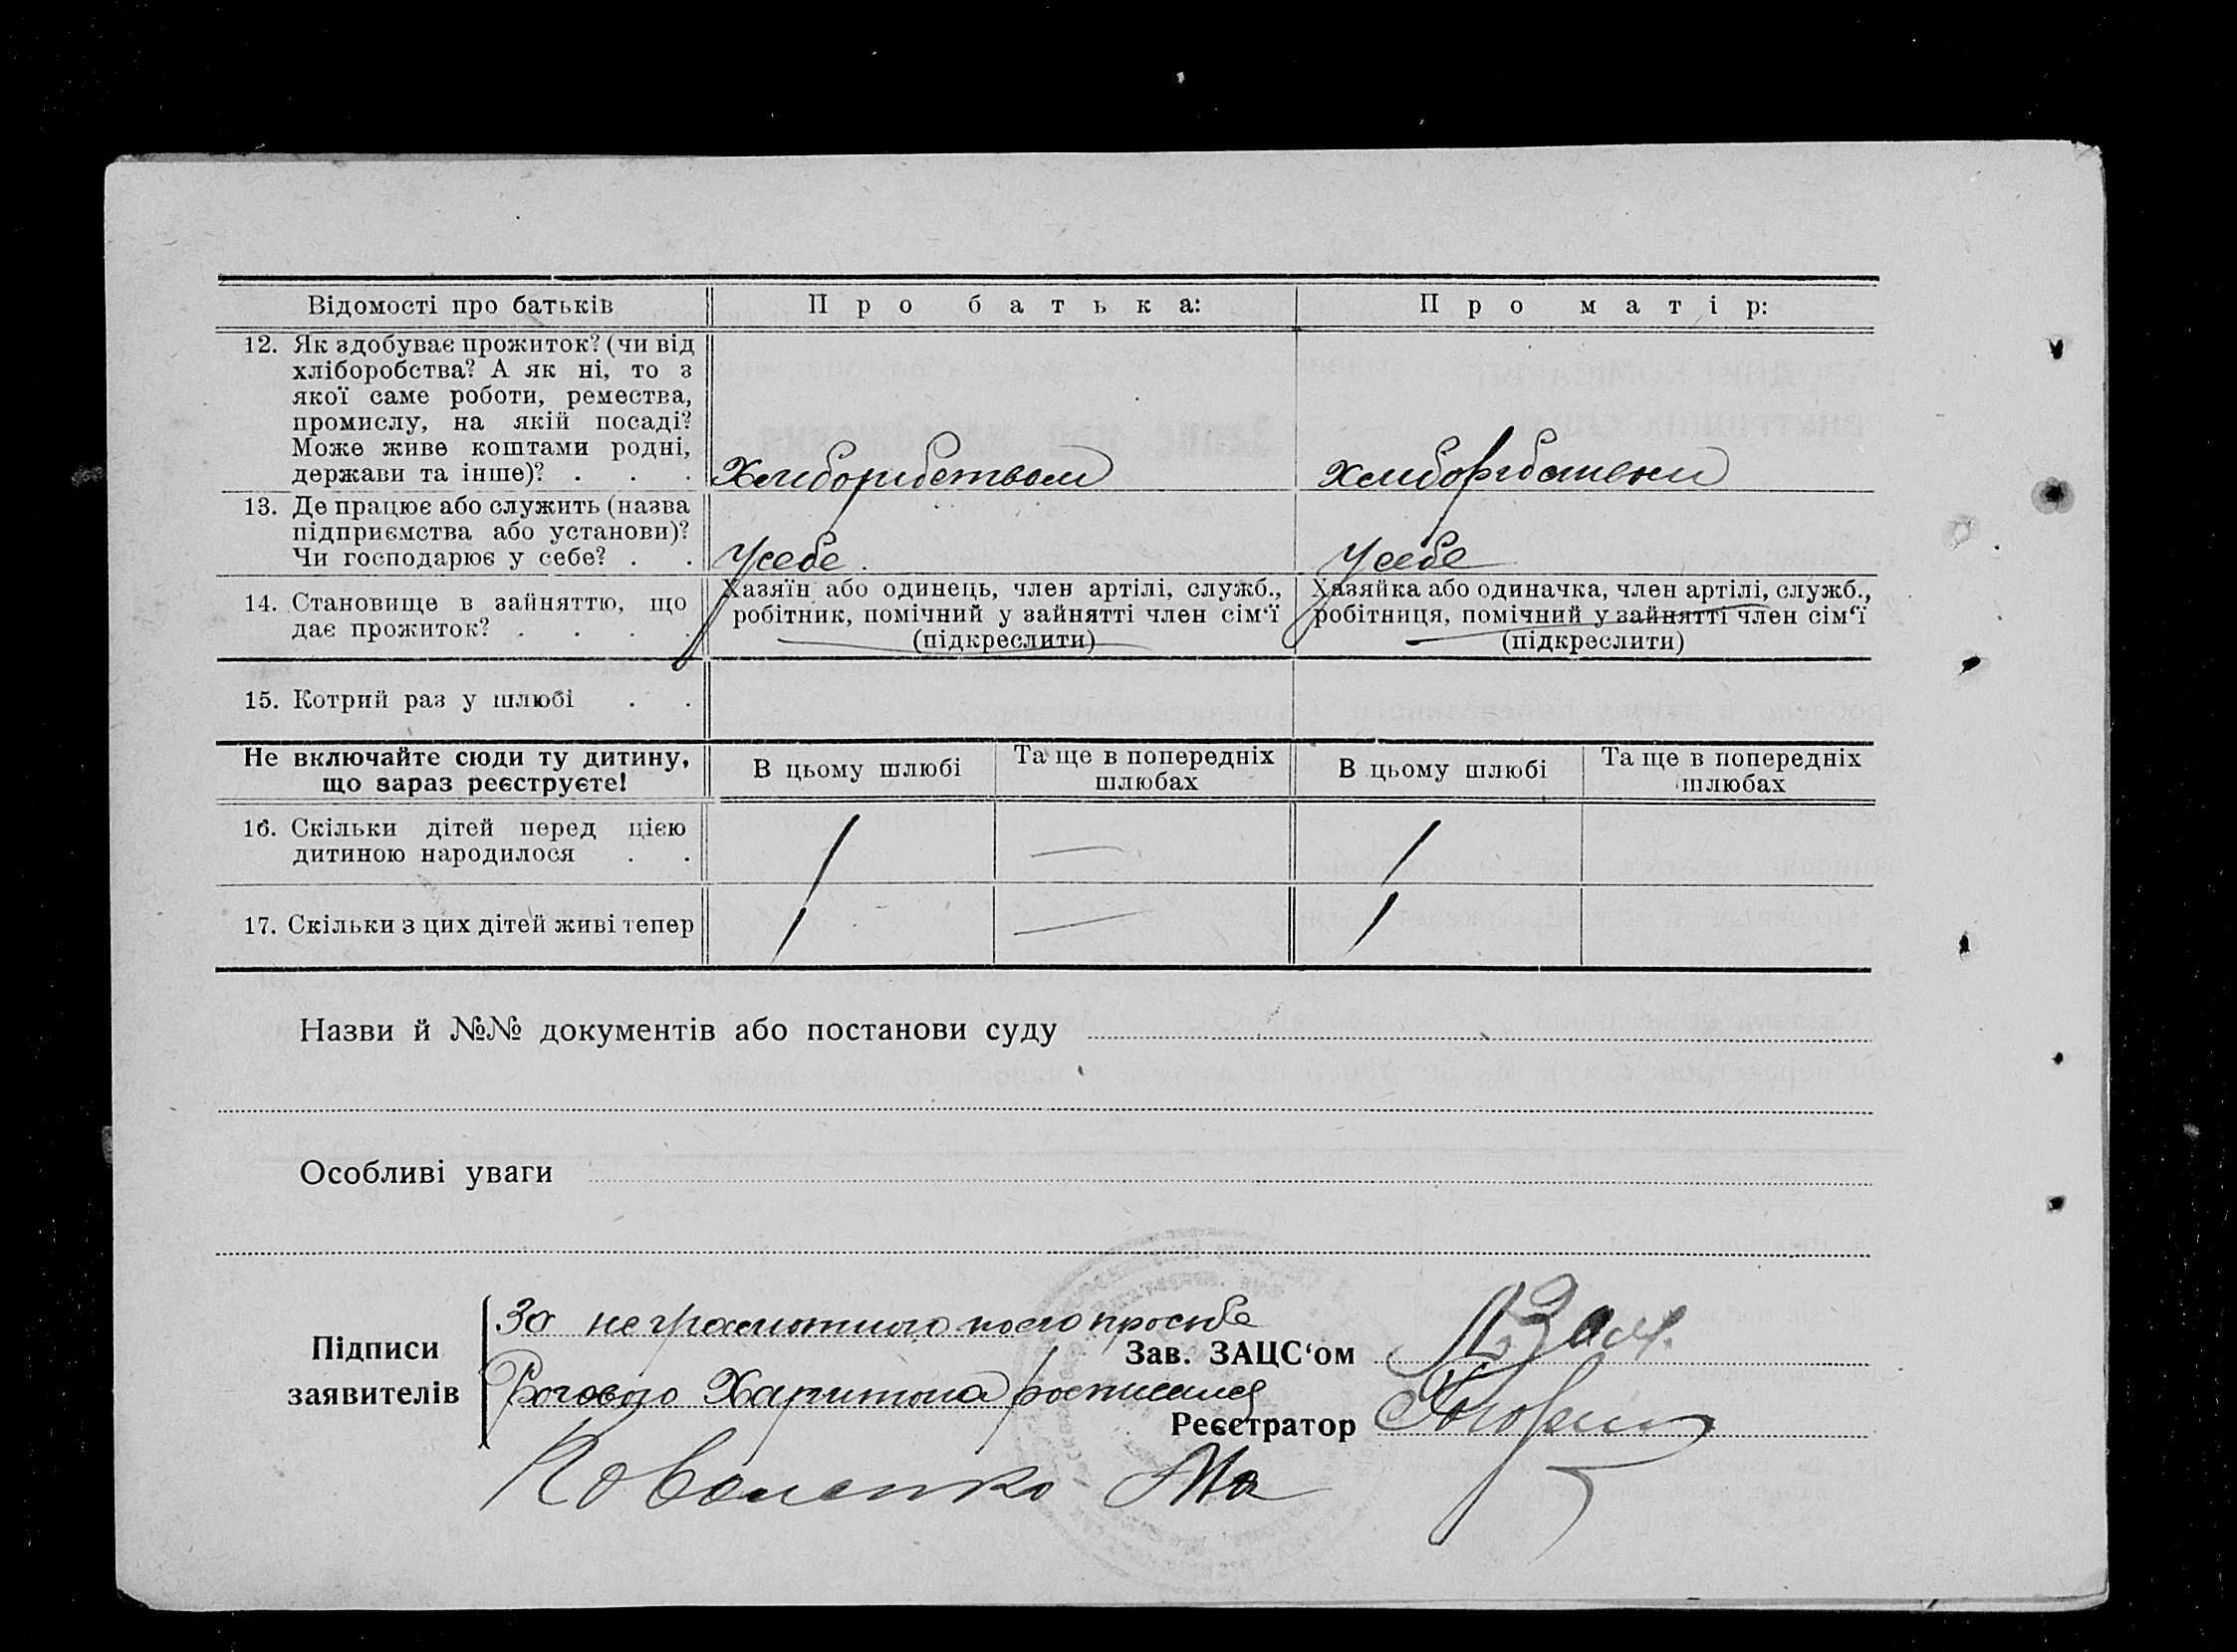 Відомості про батьків
Про батька:
Про матір:
12. Як здобуває прожиток? (чи від
хліборобства? А як ні, то з
якої саме роботи, ремества,
промислу, на якій посаді?
Може живе коштами родні,
держави та інше)? . . .
Хлиборибством
13. Де працює або служить (назва
підприємства або установи)?
Чи господарює у себе? . .
Усебе
Усебе
14. Становище в зайняттю, що
дає прожиток? . . . .
Хазяїн або одинець, член артілі, служб.,
робітник, помічний у зайнятті член сім‘ї
(підкреслити)
Хазяйка або одиначка, член артілі, служб.,
робітниця, помічний у зайнятті член сім‘ї
(підкреслити)
15. Котрий раз у шлюбі . .
Не включайте сюди ту дитину,
що зараз реєструєте!
В цьому шлюбі
Та ще в попередніх
шлюбах
В цьому шлюбі
Та ще в попередніх
шлюбах
16. Скільки дітей перед цією
дитиною народилося . .
1 — 1
17. Скільки з цих дітей живі тепер
1 — 1
Назви й №№ документів або постанови суду
Особливі уваги
Підписи
заявителів
За неграмотного поего просьбе
Рогового Харитона росписался
Коваленко
Зав. ЗАЦС‘ом
Реєстратор